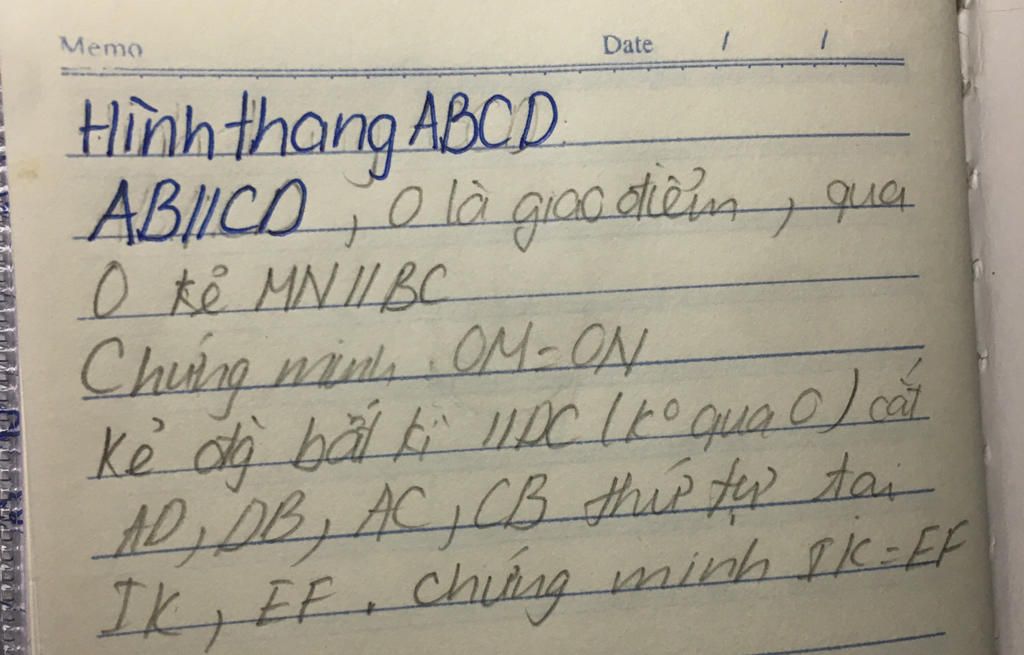 Memo Date / /
Hình thang ABCD.
AB//CD, O là giao điểm, qua
O kẻ MN//BC
Chứng minh. OM=ON
Kẻ đg bất kì //DC (ko qua O) cắt
AD, DB, AC, CB thứ tự tại
IK, EF. Chứng minh IK=EF